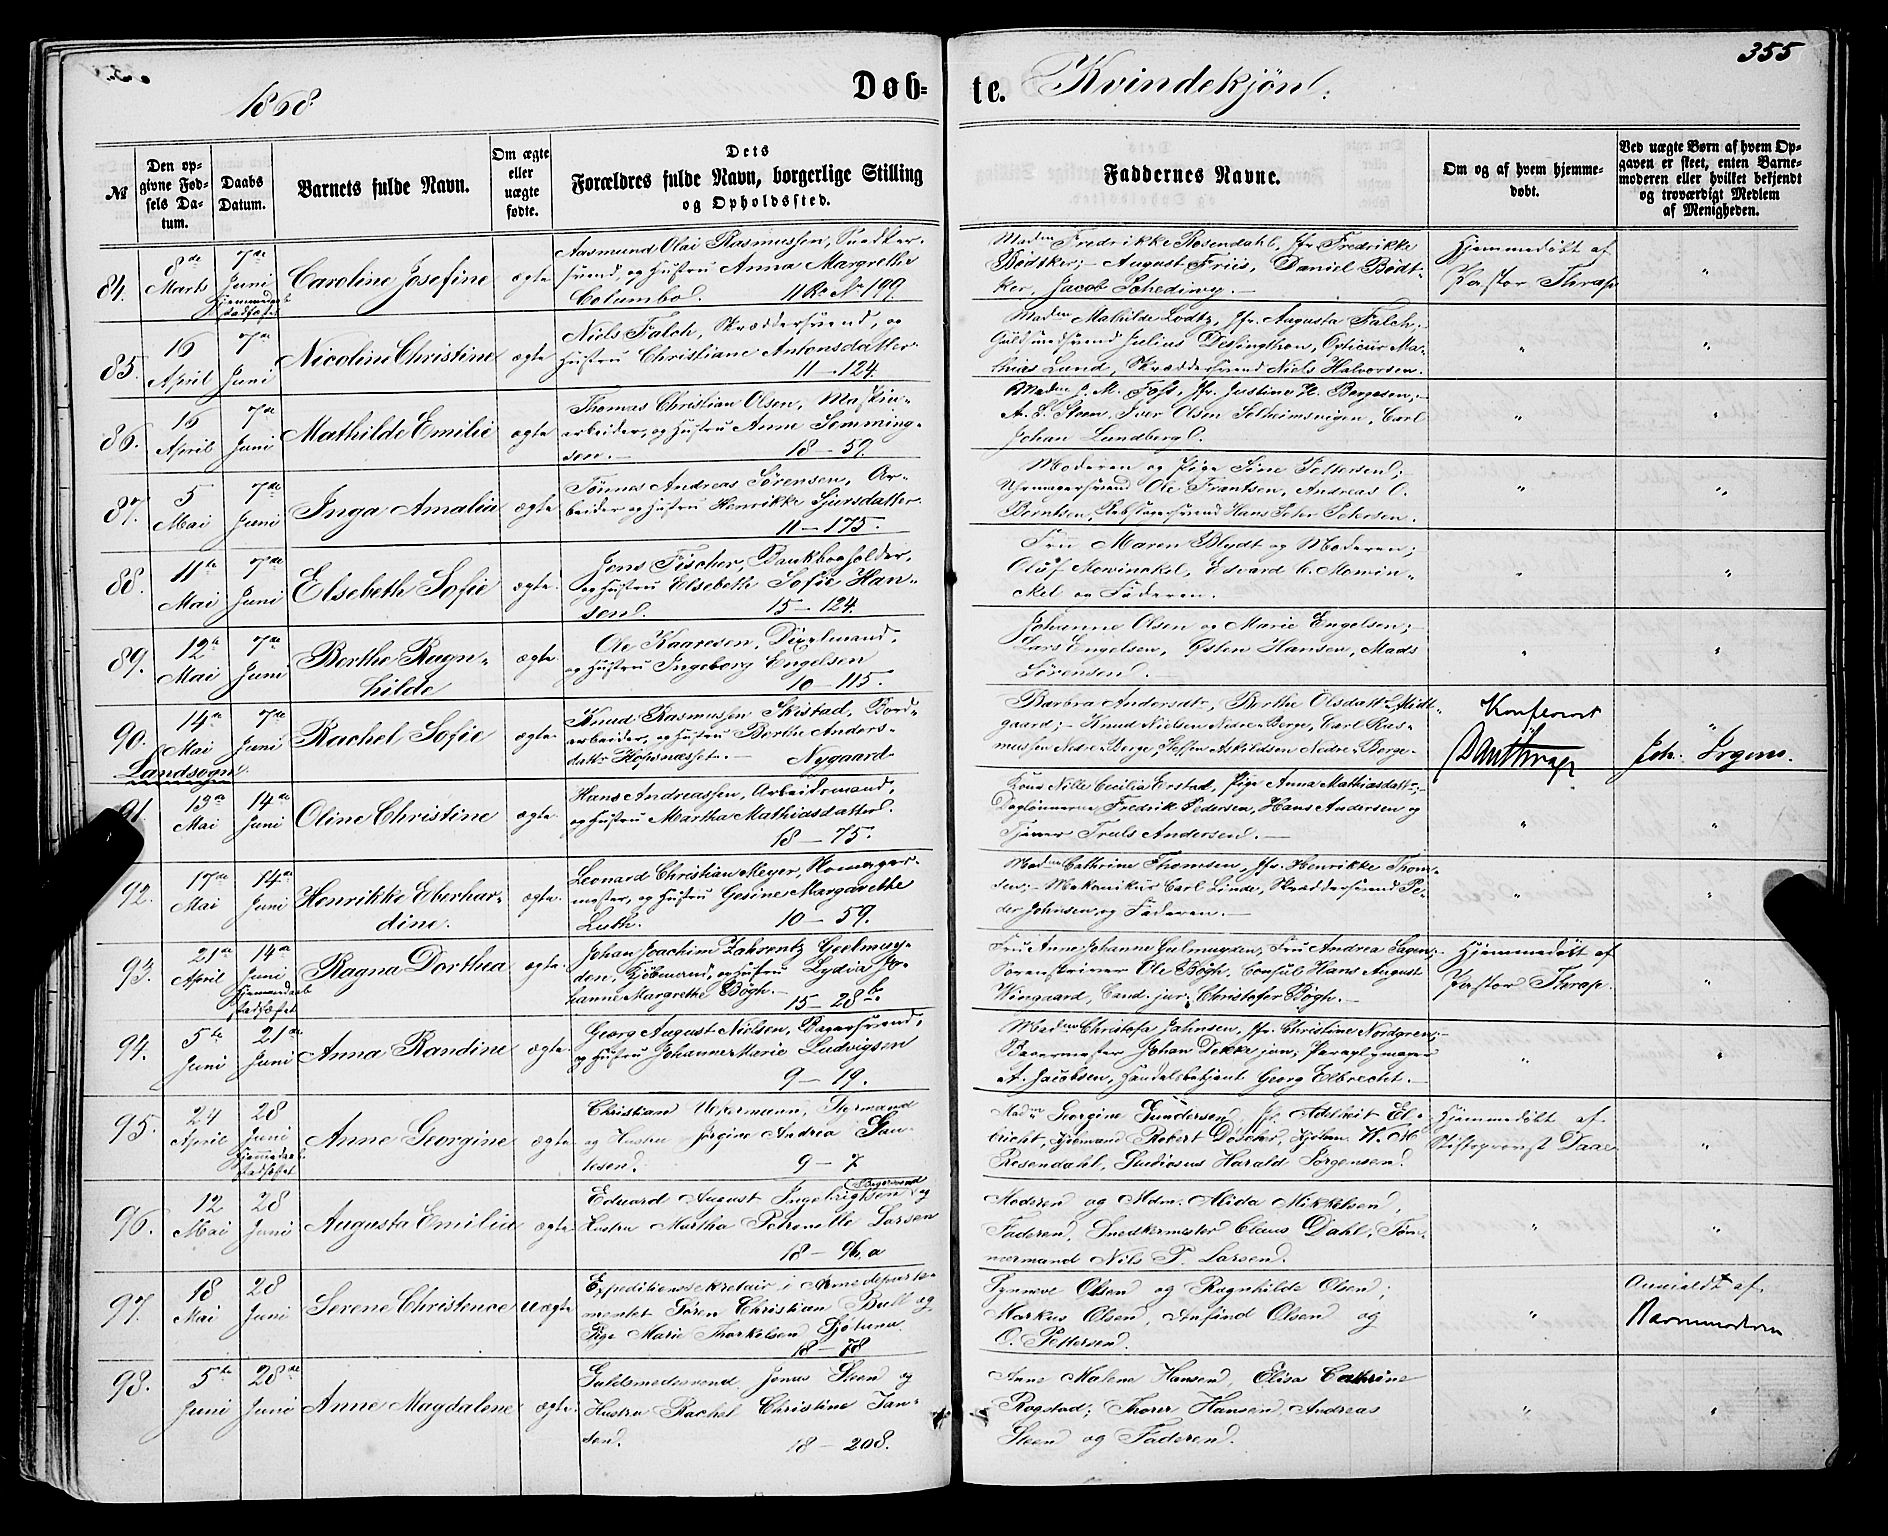 355
1868
Døb-te. Kvindekjøn.
№
Den opgivne Fødsels Datum.
Daabs Datum.
Barnets fulde Navn.
Om ægte eller uægte fødte.
Dets Forældres fulde Navn, borgerlige Stilling og Opholdssted.
Faddernes Navne.
Om og af hvem hjemmedøbt.
Ved uægte Børn af hvem Opgaven er skeet, enten Barnemoderen eller hvilket bekjendt og troværdigt Medlem af Menigheden.
84. 8de Marts 7de Juni Hjemmedaab stadfæstet Caroline Josefine ægte
Aasmund Olai Rasmussen, Snedker-
svend, og Hustru Anna Margrethe
Columbo. 11 R. No 199.
Madm Fredrikke Rosendahl, Jfr. Fredrikke
Bødtker; August Friis, Daniel Bødt-
ker, Jacob Schediwy.
Hjemmedøbt af
Pastor Thrap
"
85. 16 April 7de Juni Nicoline Christine ægte
Niels Falch, Skræddersvend, og
Hustru Christiane Antonsdatter
11 - 124.
Madm Mathilde Lodtz, Jfr. Augusta Falch;
Guldsmedsvend Julius Dessingthon, Opticus Ma-
thias Lund, Skræddersvend Niels Halvorsen.
" "
86. 16 April 7de Juni Mathilde Emilie ægte
Thomas Christian Olsen, Maskin-
arbeider, og Hustru Anne Lemming-
sen. 18 - 59
Madm J. M. Foss, Jfr. Justine H. Borgesen,
A. S. Steen, Iver Olsen Solheimsvigen, Carl
Johan Lundberg.
" "
87. 5 Mai 7de Juni Inga Amalia ægte
Tønnes Andreas Sørensen, Ar-
beider og Hustru Henrikke Sjursdatter
11 - 175.
Moderen og Pige Sine Pettersen;
Uhrmagersvend Ole Frantsen, Andreas O.
Berntsen, Rebslagersvend Hans Peter Petersen.
" "
88. 11te Mai 7de Juni Elsebeth Sofie ægte.
Jens Fischer, Bankbogholder,
og Hustru Elsebeth Sofie Han-
sen. 15 - 124.
Fru Maren Blydt og Moderen;
Oluf Mowinckel, Edvard C. Mowin-
ckel og Faderen.
" "
89. 12te Mai 7de Juni Berthe Ragn-
hilde ægte.
Ole Kaaresen, Dixelmand,
og Hustru Ingeborg Engelsen
10 - 115.
Johanne Olsen og Marie Engelsen;
Lars Engelsen, Østen Hansen, Mads
Sørensen.
" "
90. 14de Mai 7de Juni Rachel Sofie ægte
Knud Rasmussen Skistad, Bord-
arbeider, og Hustru Berthe Anders-
datr Hopsnæsset. Nygaard
Barbra Andersdtr, Berthe Olsdatr Midt-
gaard; Knud Nielsen Nedre-Berge, Carl Ras-
mussen Nedre-Berge, Steffen Askildsen Nedre-Berge.
Konfereret
"
Joh. Irgens.
Landsogn.
91. 13de Mai 14de Juni Oline Christine ægte.
Hans Andreassen, Arbeidsmand,
og Hustru Martha Mathiasdatter.
18 - 75.
Kone Nille Cecilia Erstad, Pige Anna Mathiasdatr;
Dagløннerne Fredrik Pedersen, Hans Andersen og
Tjener Truls Andersen.
" "
92. 17de Mai 14de Juni Henrikke Eberhar-
dine. ægte.
Leonard Christian Meyer, Pomager-
mester, og Hustru Gesine Margarethe
Luth. 10 - 59.
Madm Cathrine Thomsen, Jfr. Henrikke Thom-
sen; Mekanikus Carl Linde, Skræddersvend Pe-
der Johnsen, og Faderen.
" "
93. 21de April 14de Juni Hjemmedaab stadfæstet Ragna Dorthea ægte.
Johan Joachim Zahrentz Geelmuy-
den, Kjøbmand, og Hustru Lydia Jo-
hanne Margrethe Bøgh. 15 - 28b.
Fru Anne Johanne Gelmuyden, Fru Andrea Sagen;
Sorenskriver Ole Bøgh, Consul Hans August
Wingaard, Cand. jur. Christofer Bøgh.
Hjemmedøbt af
Pastor Thrap.
"
94. 5te Juni 21de Juni Anna Randine ægte
Georg August Nielsen, Bagersvend,
og Hustru Johanne Marie Ludvigsen
9 - 19.
Madm Christofa Jahnsen, Jfr. Christine Nordgren;
Bagermester Johan Dekke jun, Paraplymager
A. Jacobsen, Handelsbetjent Georg Elbrecht.
" "
95. 24 April 28 Juni Hjemmedaab stadfæstet Anne Georgine ægte
Christian Uckermann, Styrmand
og Hustru Jørgine Andrea Han-
sen. 9 - 7
Madm Georgine Gundersen, Jfr. Adelheit El-
bricht, Kjøbmand Robert Døscher, Kjøbm. W. M
Rosendahl, Studiosus Harald Jørgensen.
Hjemmedøbt af
Stiftsprovst Daae
"
96. 12 Mai 28 Juni Augusta Emilia ægte
Eduard August Ingebrigtsen Bagersvend og
Hustru Martha Petronelle Larsen
18 - 96.a
Moderen og Mdm. Alida Mikkelsen,
Faderen, Snedkermester Claus Dahl, Tøm-
mermand Nils T. Larsen.
" "
97. 18 Mai 28 Juni Serene Christence uægte
Expeditionssekretair i Armedeparte-
mentet Søren Christian Bull og
Pige Marie Thorkelsen Sjøtun.
18 - 78
Synneve Olsen og Ragnhilde Olsen;
Markus Olsen, Anfind Olsen og
O. Pettersen.
"
Anmeldt af
Barnemoderen
98. 5te Juni 28de Juni Anne Magdalene ægte.
Guldsmedsvend Jonas Steen og
Hustru Rachel Christine Jan-
sen. 18 - 208.
Anne Malene Hansen, Elisa Cathrine
Rogstad; Thorer Hansen, Andreas
Steen og Faderen.
" "